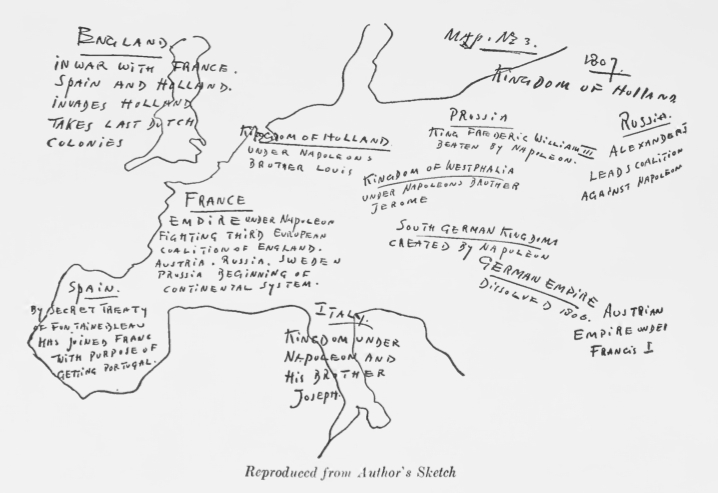 ENGLAND.
IN WAR WITH FRANCE.
SPAIN AND HOLLAND.
INVADES HOLLAND
TAKES LAST DUTCH
COLONIES
MAP. No 3.
1807.
KINGDOM OF HOLLAND
KINGDOM OF HOLLAND
UNDER NAPOLEONS
BROTHER LOUIS
PRUSSIA
KING FREDERIC WILLIAM III
BEATEN BY NAPOLEON.
RUSSIA.
ALEXANDER I
LEADS COALITION
AGAINST NAPOLEON
KINGDOM OF WESTPHALIA
UNDER NAPOLEONS BROTHER
JEROME
FRANCE
EMPIRE UNDER NAPOLEON
FIGHTING THIRD EUROPEAN
COALITION OF ENGLAND.
AUSTRIA. RUSSIA. SWEDEN
PRUSSIA BEGINNING OF
CONTINENTAL SYSTEM.
SOUTH GERMAN KINGDOMS
CREATED BY NAPOLEON
GERMAN EMPIRE
DISSOLVED 1806.
AUSTRIAN
EMPIRE UNDER
FRANCIS I
SPAIN.
BY SECRET TREATY
OF FONTAINEBLEAU
HAS JOINED FRANC
WITH PURPOSE OF
GETTING PORTUGAL.
ITALY.
KINGDOM UNDER
NAPOLEON AND
HIS BROTHER
JOSEPH.
Reproduced from Author's Sketch